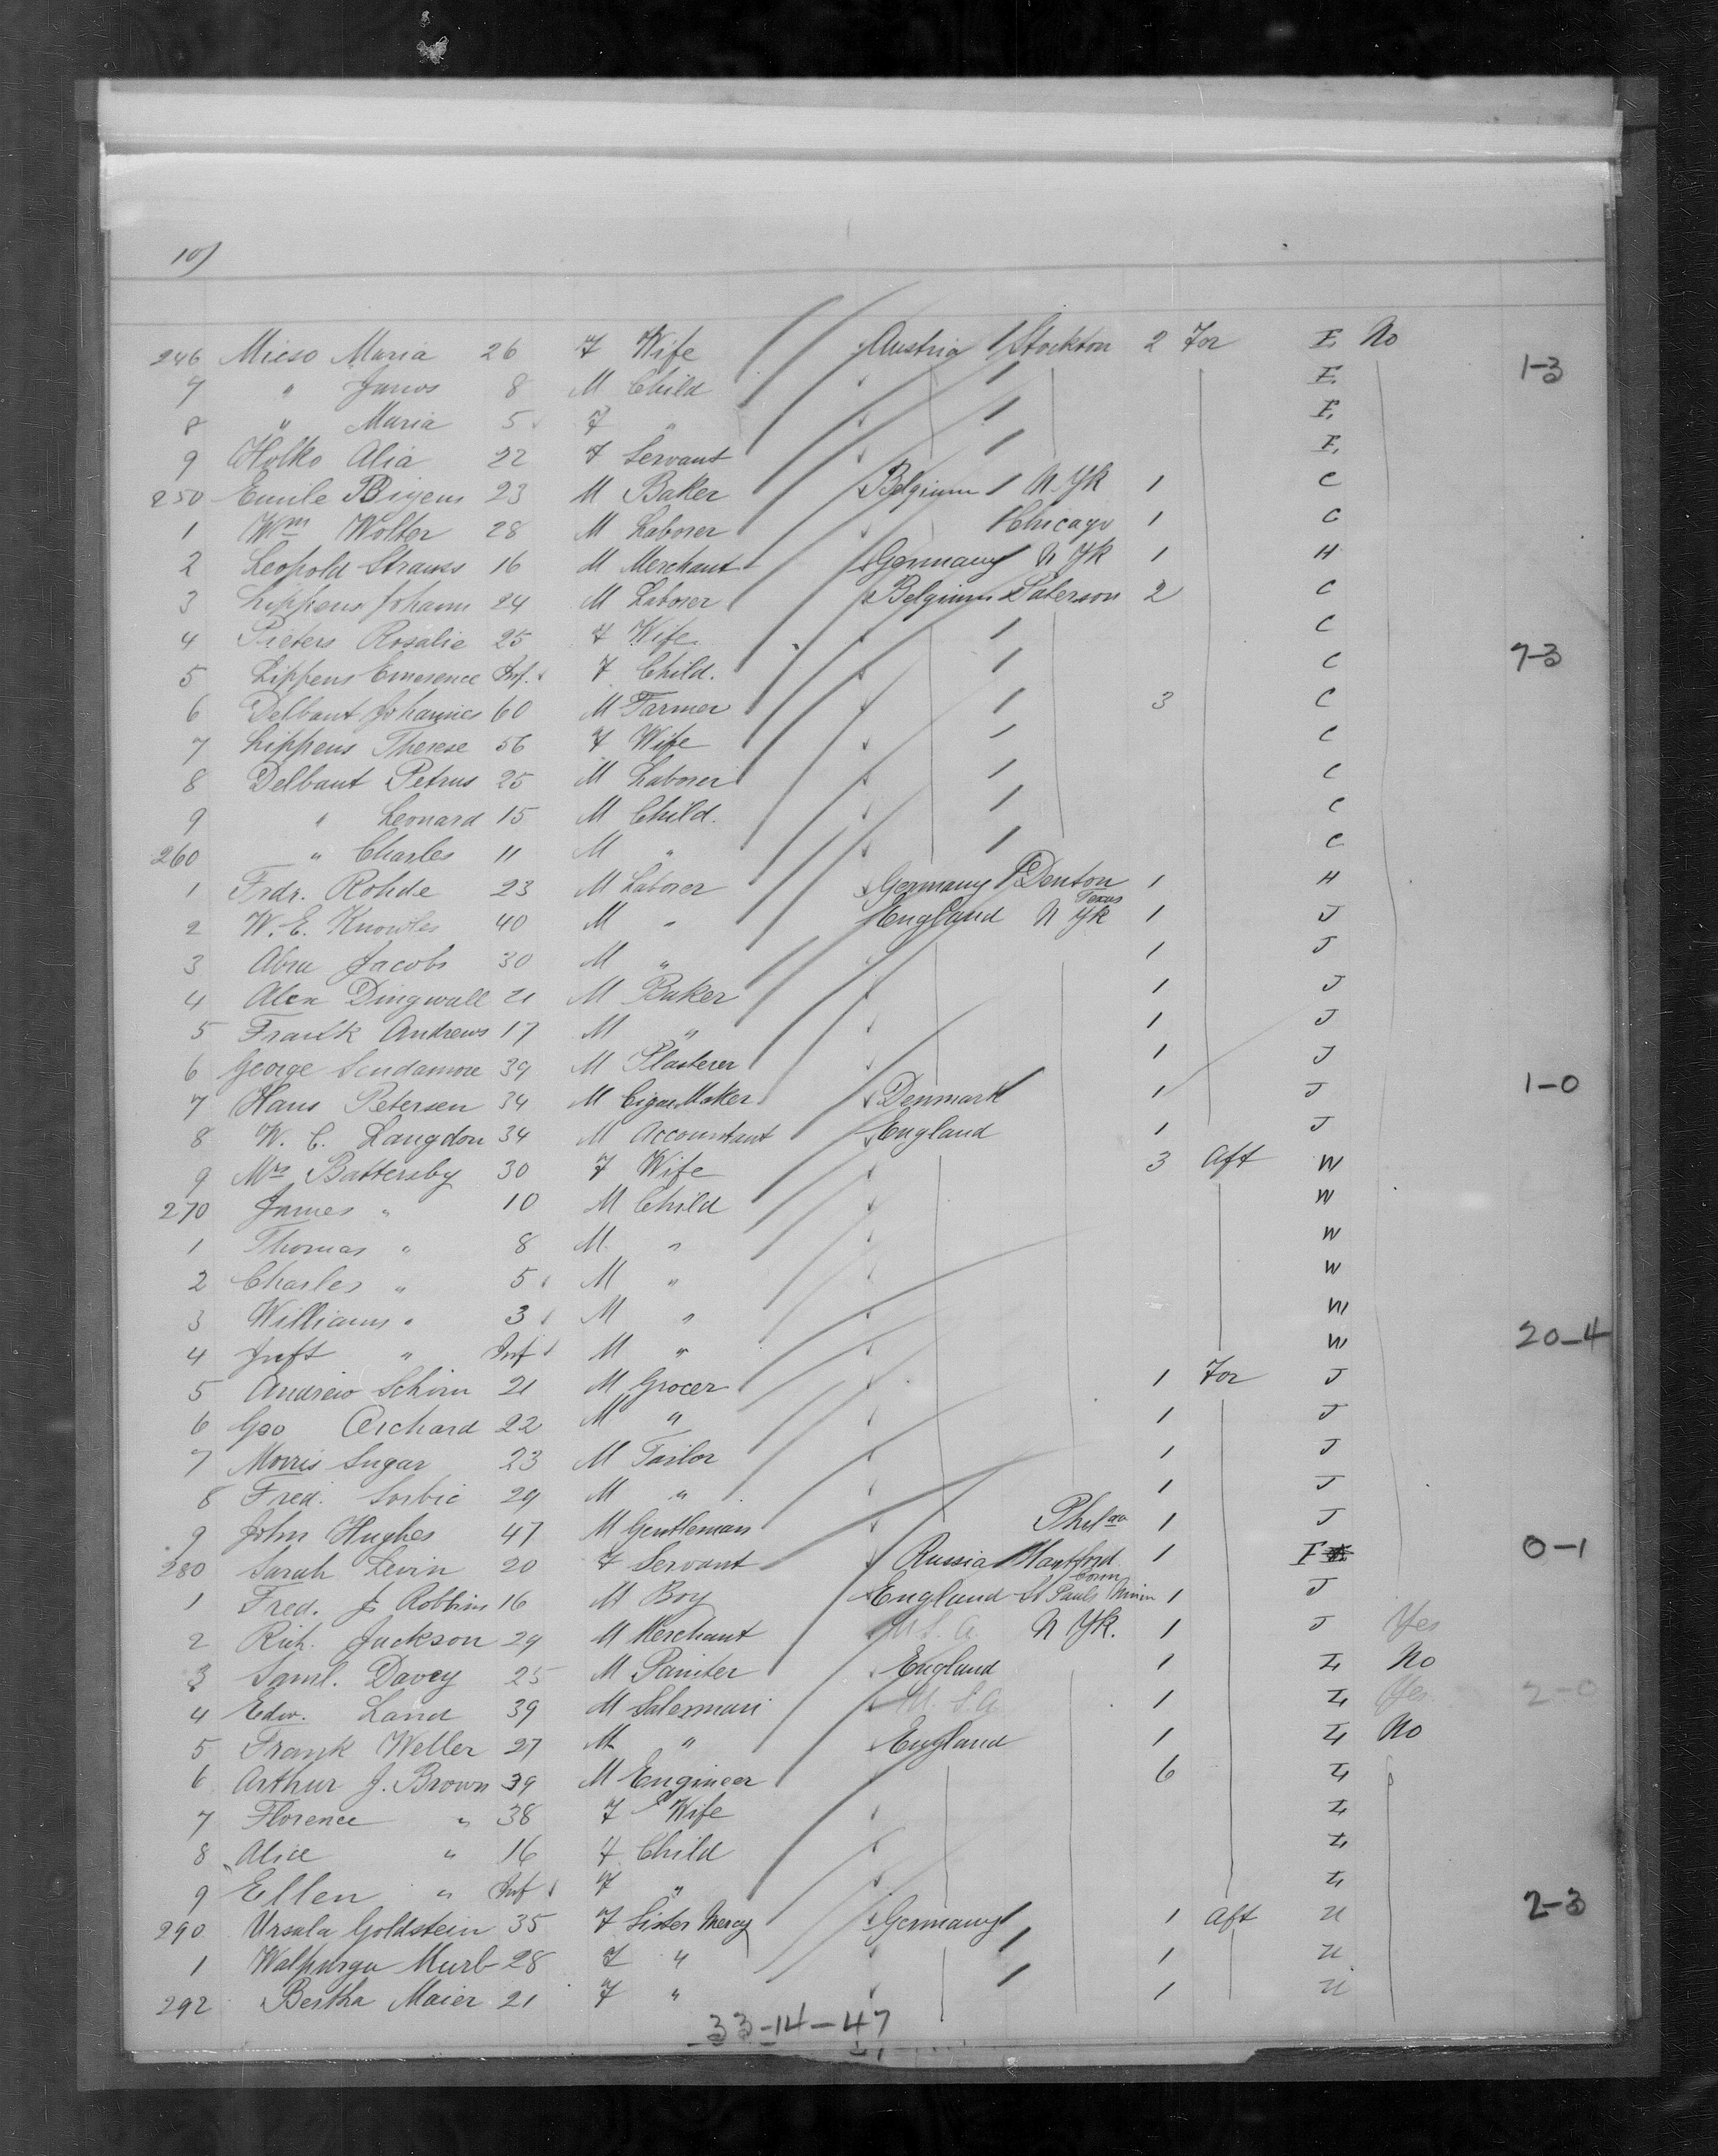 10)
246 Micso Maria 26 F Wife Austria Stockton 2 For E. No
7 " Janos 8 M Child E. 1-3
8 " Maria 5 F " E.
9 Holko Alia 22 F Servant E.
250 Emile Bigens 23 M Baker Belgium N. Yk 1 C
1 Wm Wolter 28 M Laborer Chicago 1 C
2 Leopold Strauss 16 M Merchant Germany N Yk 1 H
3 Lippens Johann 24 M Laborer Belgium Paterson 2 C
4 Pieters Rosalie 25 F Wife C
5 Lippens Emerence Inf. F Child. C 7-3
6 Delbaut Johannes 60 M Farmer 3 C
7 Lippens Therese 56 F Wife C
8 Delbaut Petrus 25 M Laborer C
9 " Leonard 15 M Child. C
260 " Charles 11 M " C
1 Frdr. Rohde 23 M Laborer Germany Denton Texas 1 H
2 W. E. Knowles 40 M " England N Yk 1 J
3 Abra Jacobs 30 M " 1 J
4 Alex Dingwall 21 M Baker 1 J
5 Frank Andrews 17 M " 1 J
6 George Scudamore 39 M Plasterer 1 J
7 Hans Petersen 34 M Cigar Maker Denmark 1 J 1-0
8 W. C. Langdon 34 M Accountant England 1 J
9 Mrs Battersby 30 F Wife 3 Aft W
270 James " 10 M Child W
1 Thomas " 8 M. " W
2 Charles " 5 M " W
3 Williams " 3 M " W
4 " Inf M " W 20-4
5 Andrew Schirn 21 M Grocer 1 For J
6 Geo Orchard 22 M " 1 J
7 Morris Sugar 23 M Tailor 1 J
8 Fred. Sorbie 29 M " 1 J
9 John Hughes 47 M Gentleman Phila 1 J
280 Sarah Levin 20 F Servant Russia Hartford Conn 1 F 0-1
1 Fred. J. Robbins 16 M Boy England St Pauls Minn 1 J
2 Rich. Jackson 29 M Merchant U. S. A. N Yk. 1 J Yes
3 Saml. Davey 25 M Painter England 1 I No
4 Edw. Land 39 M Salesman U. S. A 1 I Yes 2-0
5 Frank Weller 27 M " England 1 I No
6 Arthur J. Brown 39 M Engineer 6 I
7 Florence " 38 F Wife I
8 Alice " 16 F Child I
9 Ellen " Inf F " I
290 Ursula Goldstein 35 F Sister Mercy Germany 1 Aft U 2-3
1 Walpurga Murb 28 F " 1 U
292 Bertha Maier 21 F " 1 U
33-14-47